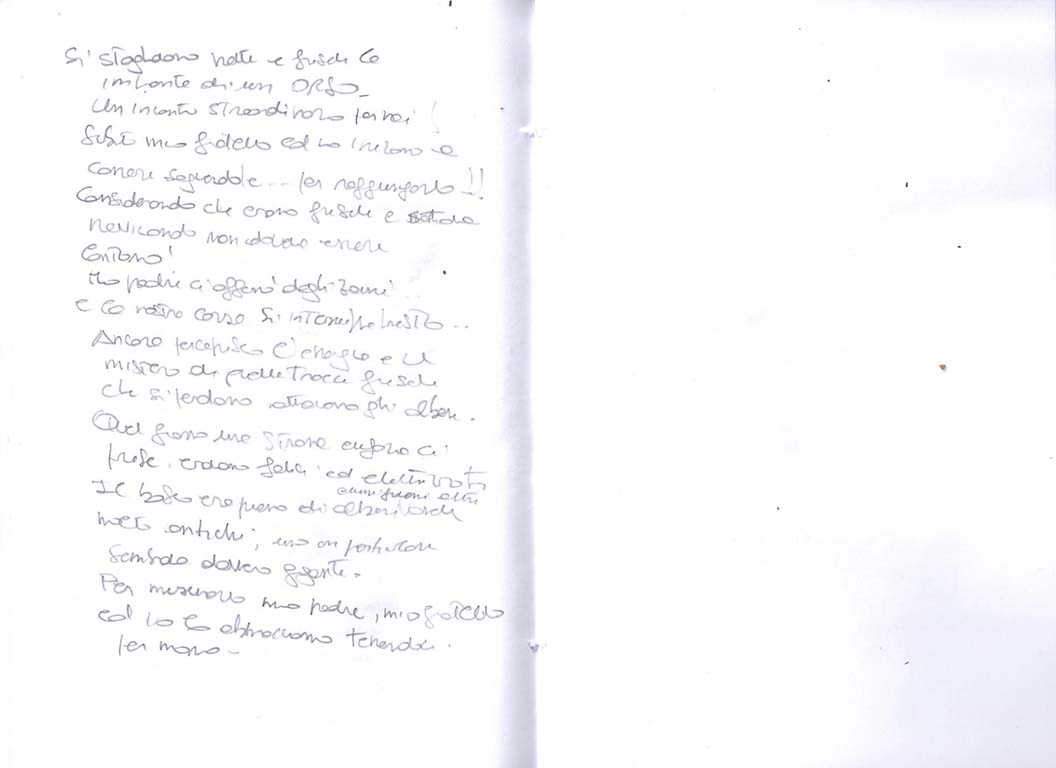 si stagliavano nette e fresche le
impronte di un ORSO_
Un incontro straordinario per noi!
Subito mio fratello ed io iniziammo a
correre seguendole... per raggiungerlo!!
Considerando che erano fresche e stava
nevicando non doveva essere
lontano!
Mio padre ci afferrò dagli zaini...
e la nostra corsa si interruppe presto...
Ancora percepisco l'energia e il
mistero di quelle tracce fresche
che si perdono attraverso gli alberi.
Quel giorno una strana euforia ci
prese, eravamo felici ed elettrizzati
Il bosco era pieno di alberi
molto antichi, uno in particolare
sembrava davvero gigante.
Per misurarlo mio padre, mio fratello
ed io lo abbracciammo tenendoci
per mano_